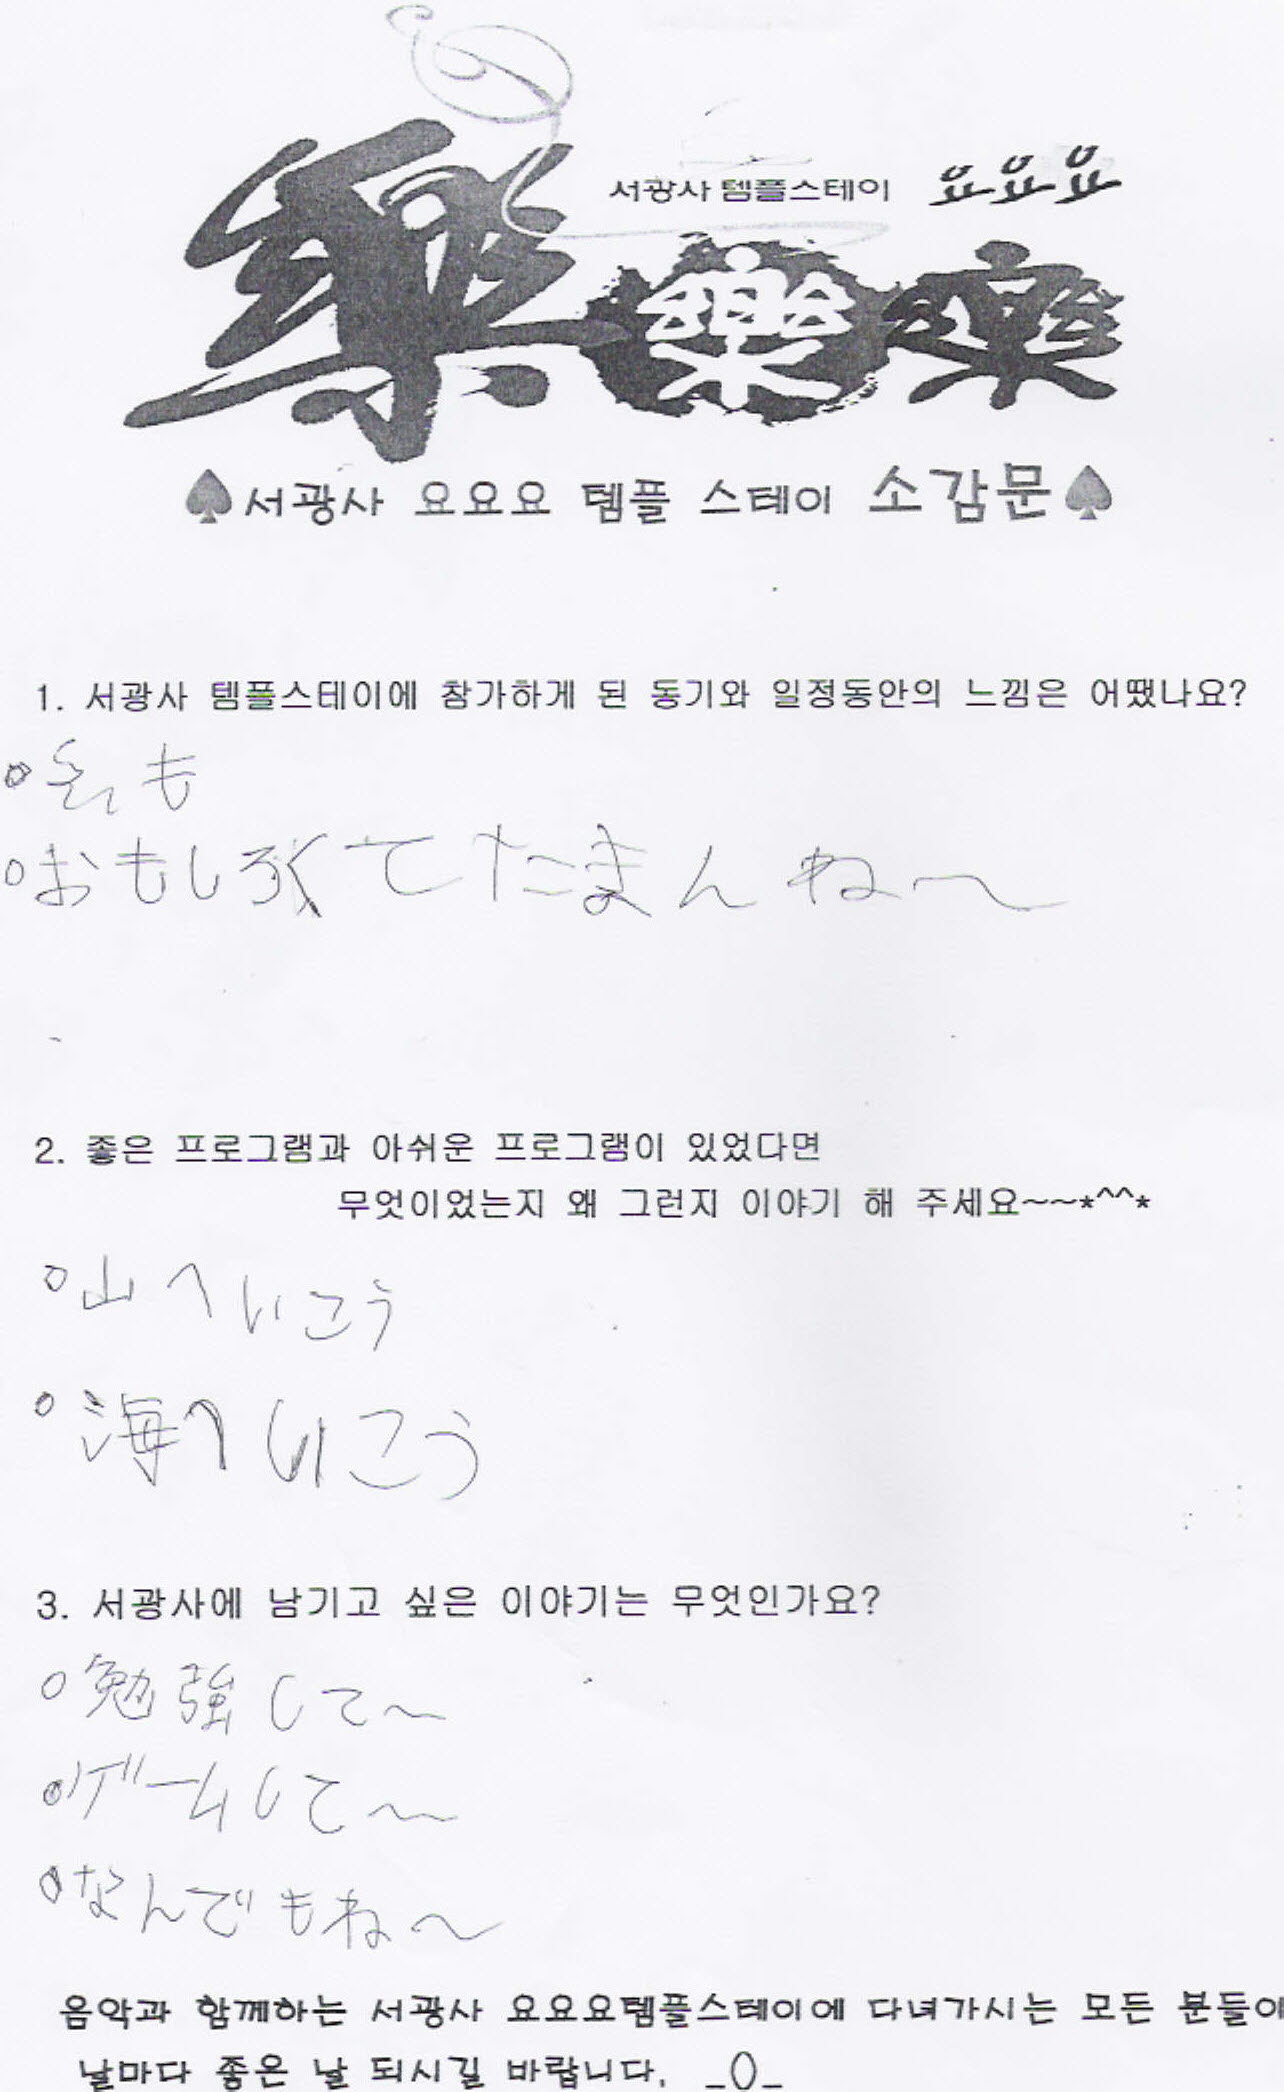 서광사 템플스테이 요요요
樂 樂 樂
♠서광사 요요요 템플 스테이 소감문♠
1. 서광사 템플스테이에 참가하게 된 동기와 일정동안의 느낌은 어땠나요?
も
おもしろくてたまんね〜
2. 좋은 프로그램과 아쉬운 프로그램이 있었다면
무엇이었는지 왜 그런지 이야기 해 주세요~~*^^*
山へいこう
海へいこう
3. 서광사에 남기고 싶은 이야기는 무엇인가요?
勉強して〜
ゲームして〜
なんでもね〜
음악과 함께하는 서광사 요요요템플스테이에 다녀가시는 모든 분들이
날마다 좋은 날 되시길 바랍니다. _O_